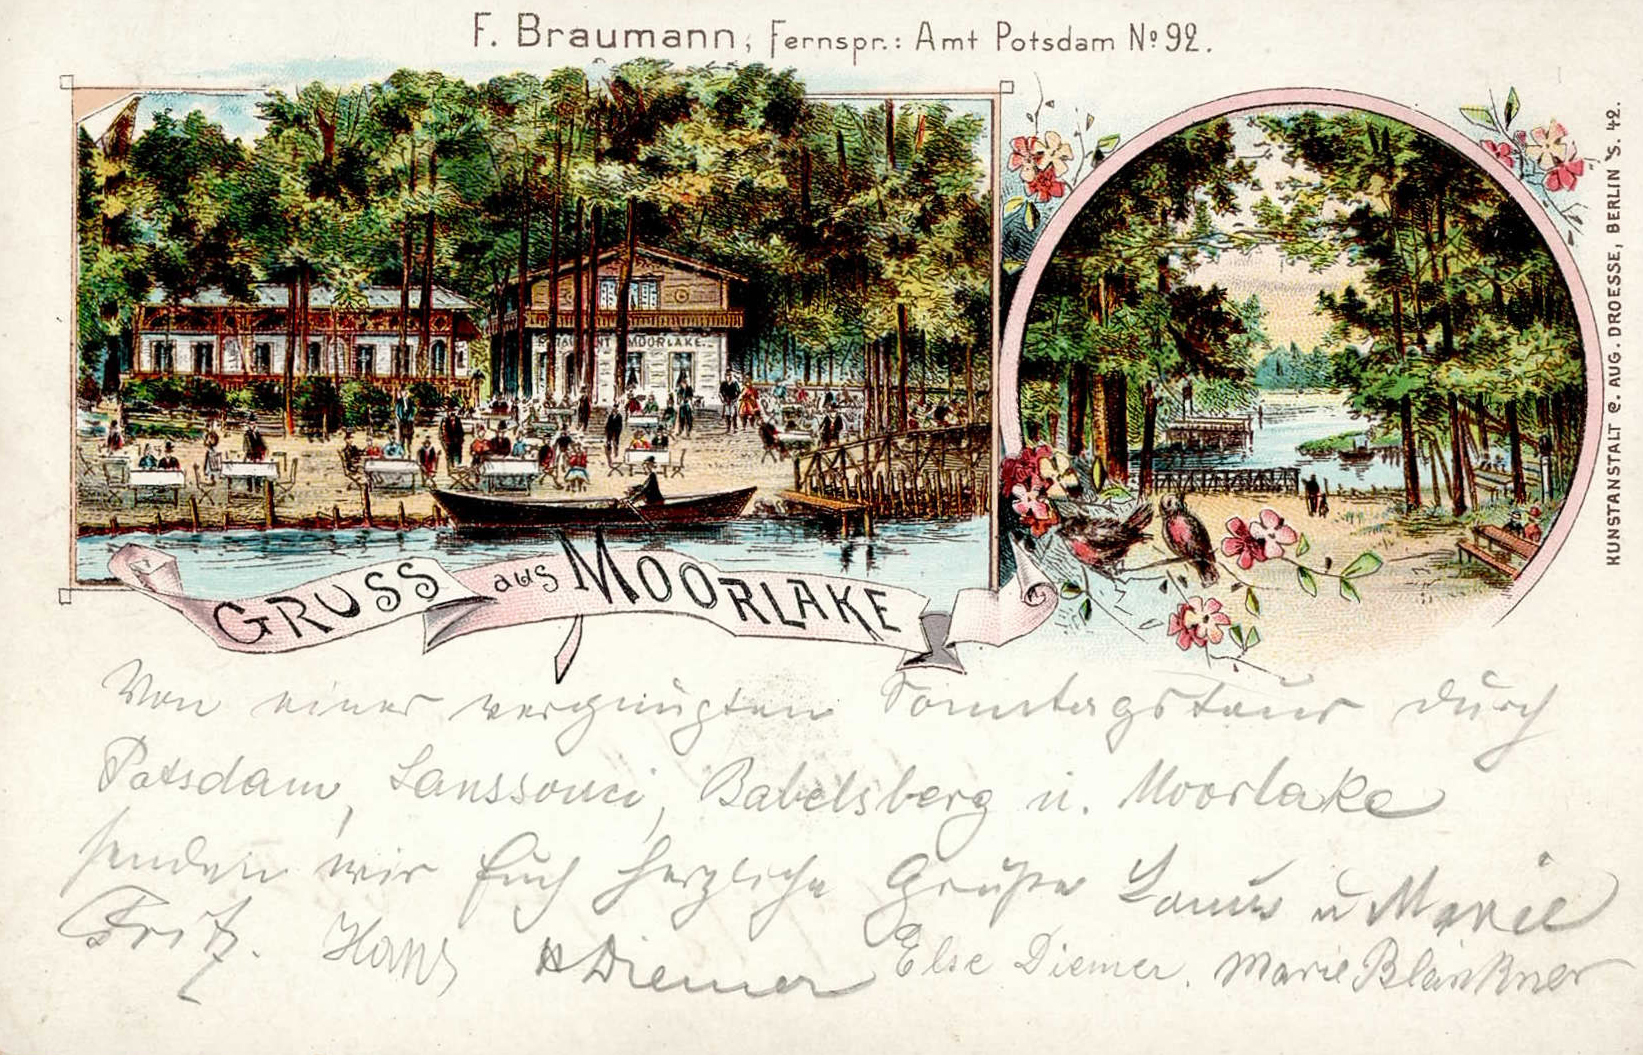 F. Braumann, Fernspr.: Amt Potsdam No 92.
RESTAURANT MOORLAKE.
GRUSS aus MOORLAKE
KUNSTANSTALT C. AUG. DROESSE, BERLIN S. 42.
Von einer vergnügten Sonntagstour durch
Potsdam, Sanssouci, Babelsberg u. Moorlake
senden wir Euch herzliche Grüße u Marie
Fritz. Hans Diemer Else Diemer. Marie Blankner